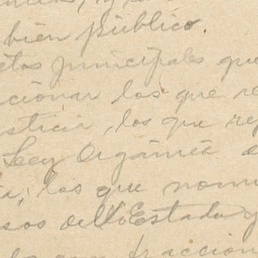 bien público.
tos principales que
cionar los que re
sticia, los que re
Ley Orgánica
los que nom
sos del Estado y
fraccion